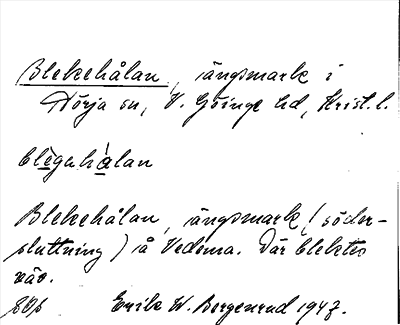 Blekehålan, ängsmark i
Nörja sn, V. Göinge hd, Krist. l.
blegehålan
Blekehålan, ängsmark (söder-
sluttning) å Vedema. Där blektes
väv.
Erik W. Borgenrud 1947.